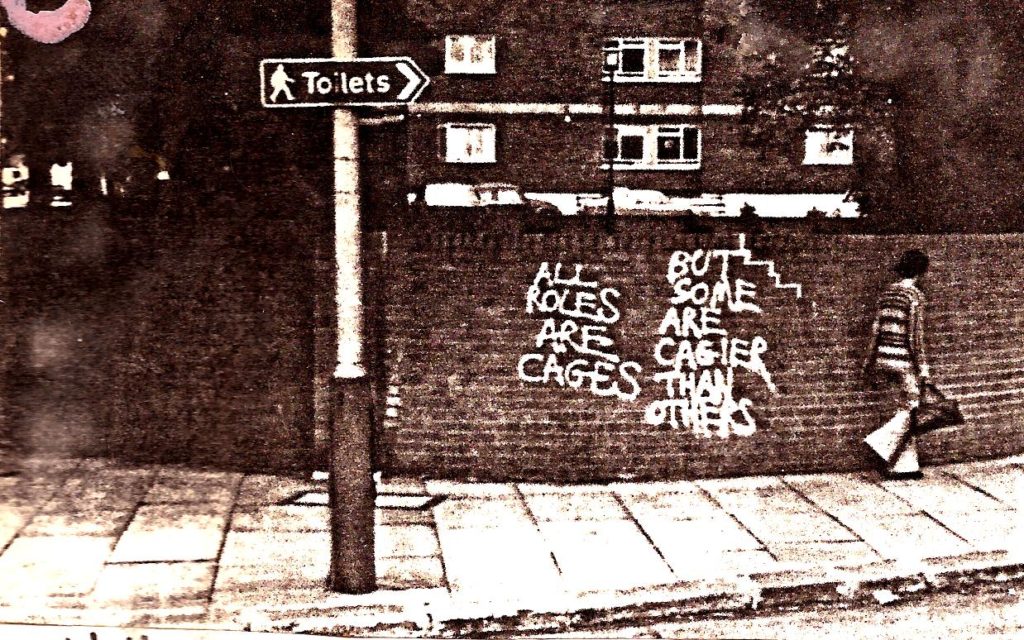 Toilets
ALL
ROLES
ARE
CAGES
BUT
SOME
ARE
CAGIER
THAN
OTHERS